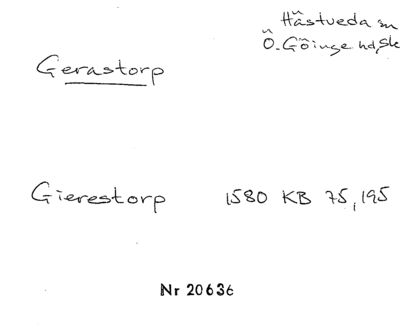 Hästveda sn
Ö. Göinge hd, Sk
Gerastorp
Gierestorp 1580 KB 75, 195
Nr 20636